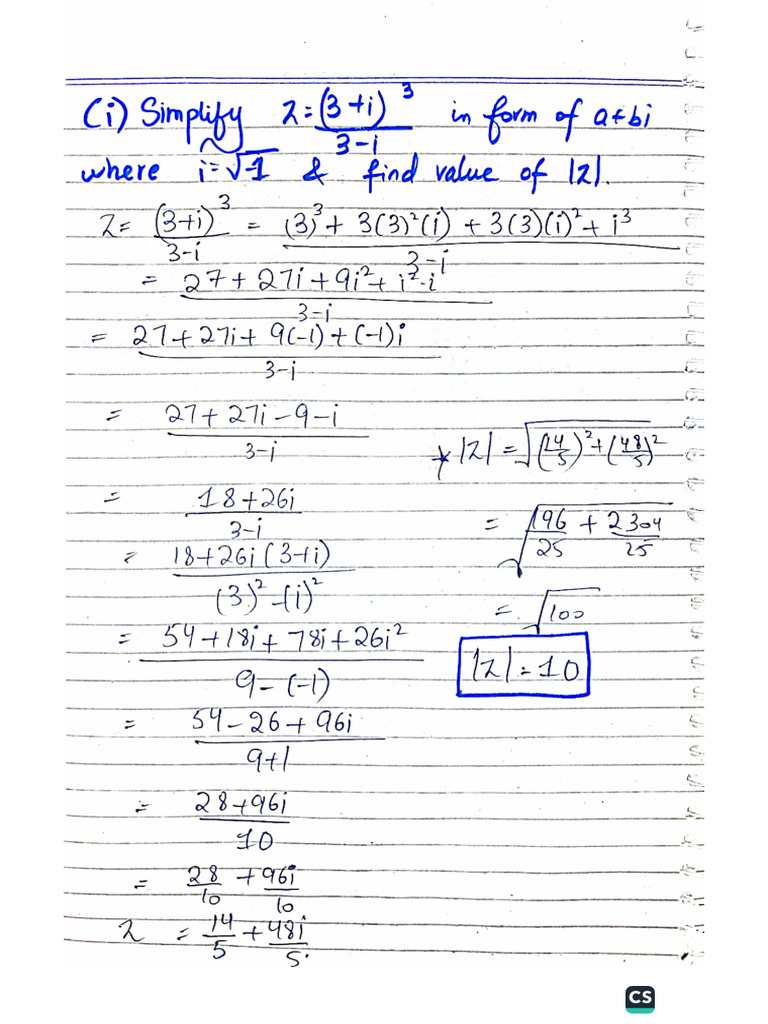 (i) Simplify z = (3+i)³/3-i in form of a+bi
where i=√-1 & find value of |z|.
z = (3+i)³/3-i = (3)³ + 3(3)²(i) + 3(3)(i)² + i³/3-i
= 27 + 27i + 9i² + i²·i/3-i
= 27 + 27i + 9(-1) + (-1)i/3-i
= 27 + 27i - 9 - i/3-i
= 18 + 26i/3-i
= 18 + 26i (3+i)/(3)² - (i)²
= 54 + 18i + 78i + 26i²/9 - (-1)
= 54 - 26 + 96i/9+1
= 28 + 96i/10
= 28/10 + 96i/10
z = 14/5 + 48i/5
* |z| = √(14/5)² + (48/5)²
= √196/25 + 2304/25
= √100
|z| = 10
CS